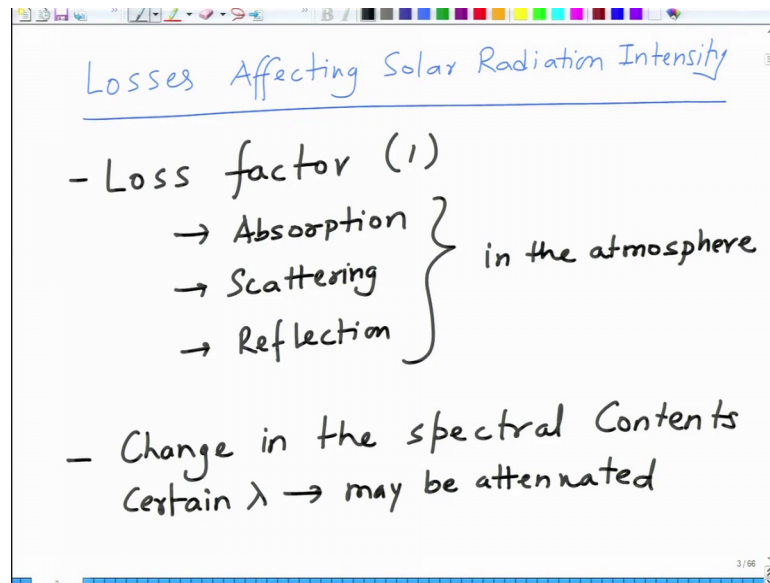 Losses Affecting Solar Radiation Intensity
- Loss factor (1)
→ Absorption
→ Scattering
→ Reflection
in the atmosphere
- Change in the spectral Contents
Certain λ → may be attennated
3/66